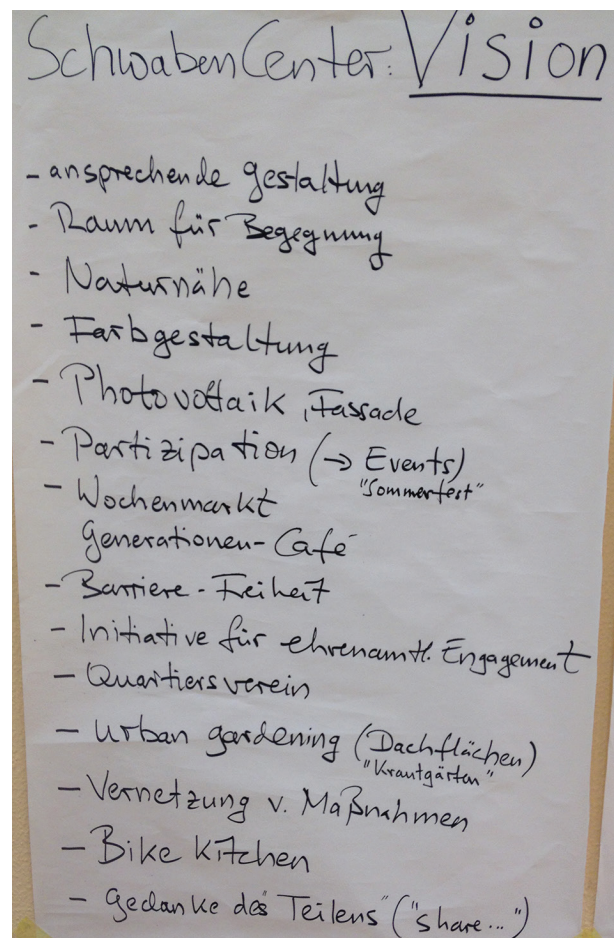 SchwabenCenter: Vision
- ansprechende Gestaltung
- Raum für Begegnung
- Naturnähe
- Farbgestaltung
- Photovoltaik, Fassade
- Partizipation (→ Events)
"Sommerfest"
- Wochenmarkt
Generationen-Café
- Barriere-Freiheit
- Initiative für ehrenamtl. Engagement
- Quartiersverein
- Urban gardening (Dachflächen)
"Krautgärten"
- Vernetzung v. Maßnahmen
- Bike Kitchen
- Gedanke des "Teilens" ("share...")